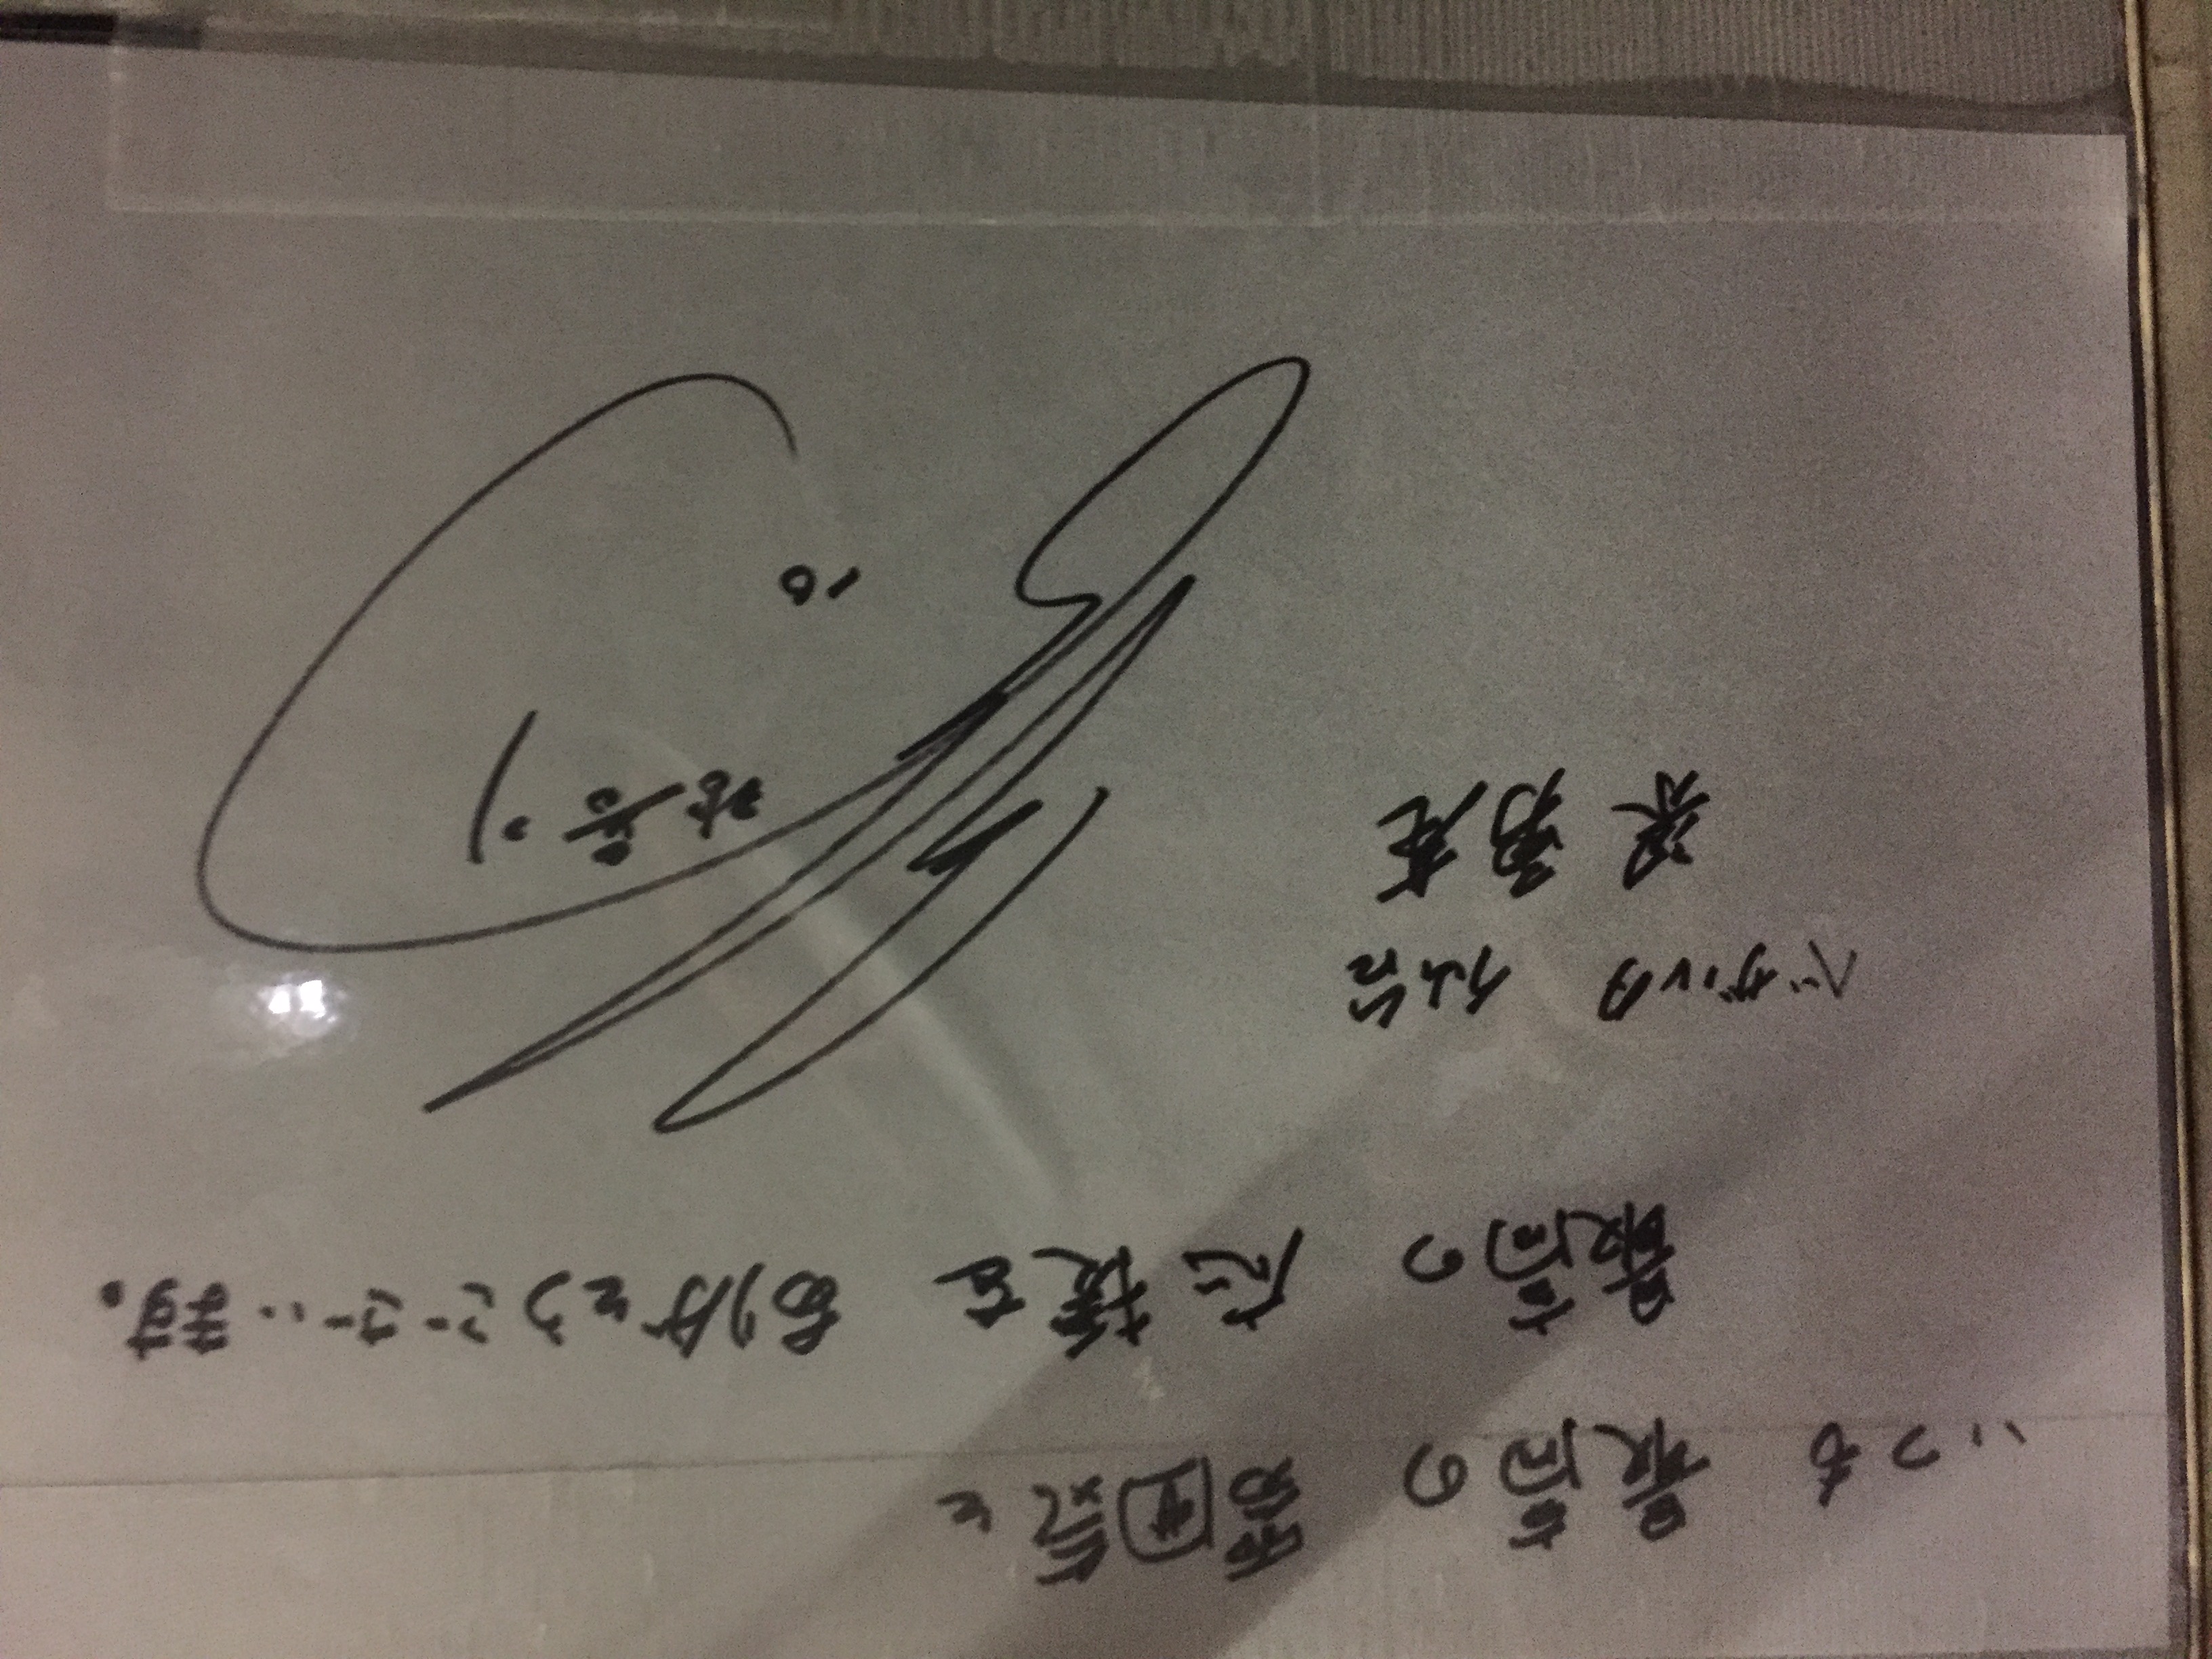 いつも 最高の 雰囲気と
最高の 応援を ありがとうございます。
ベガルタ 仙台
梁 勇基
10